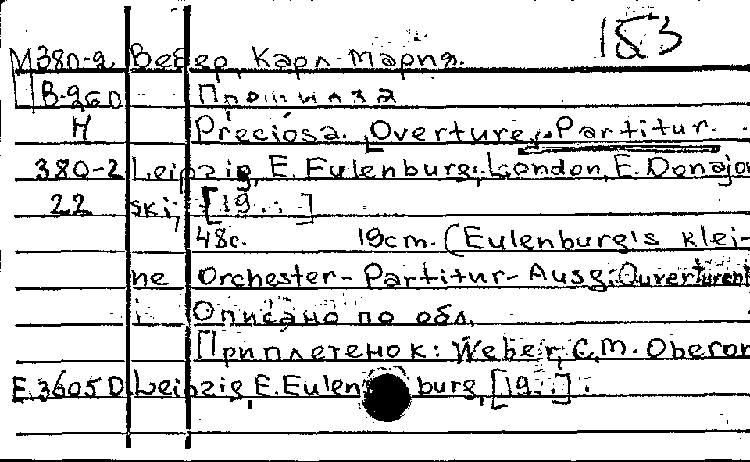 183
М380-2 Вебер, Карл Мария.
В-260
Н Preciosa. Overture. Partitur.
380-2 Leipzig, E. Eulenburg; London, E. Donajow
22 ski, [19..]
48с. 19cm. (Eulenburg's klei-
ne Orchester-Partitur-Ausg: Ouverturen)
Описано по обл.
Приплетенок: Weber, C.M. Oberon
E.3605D Leipzig, E. Eulenburg, [19..].